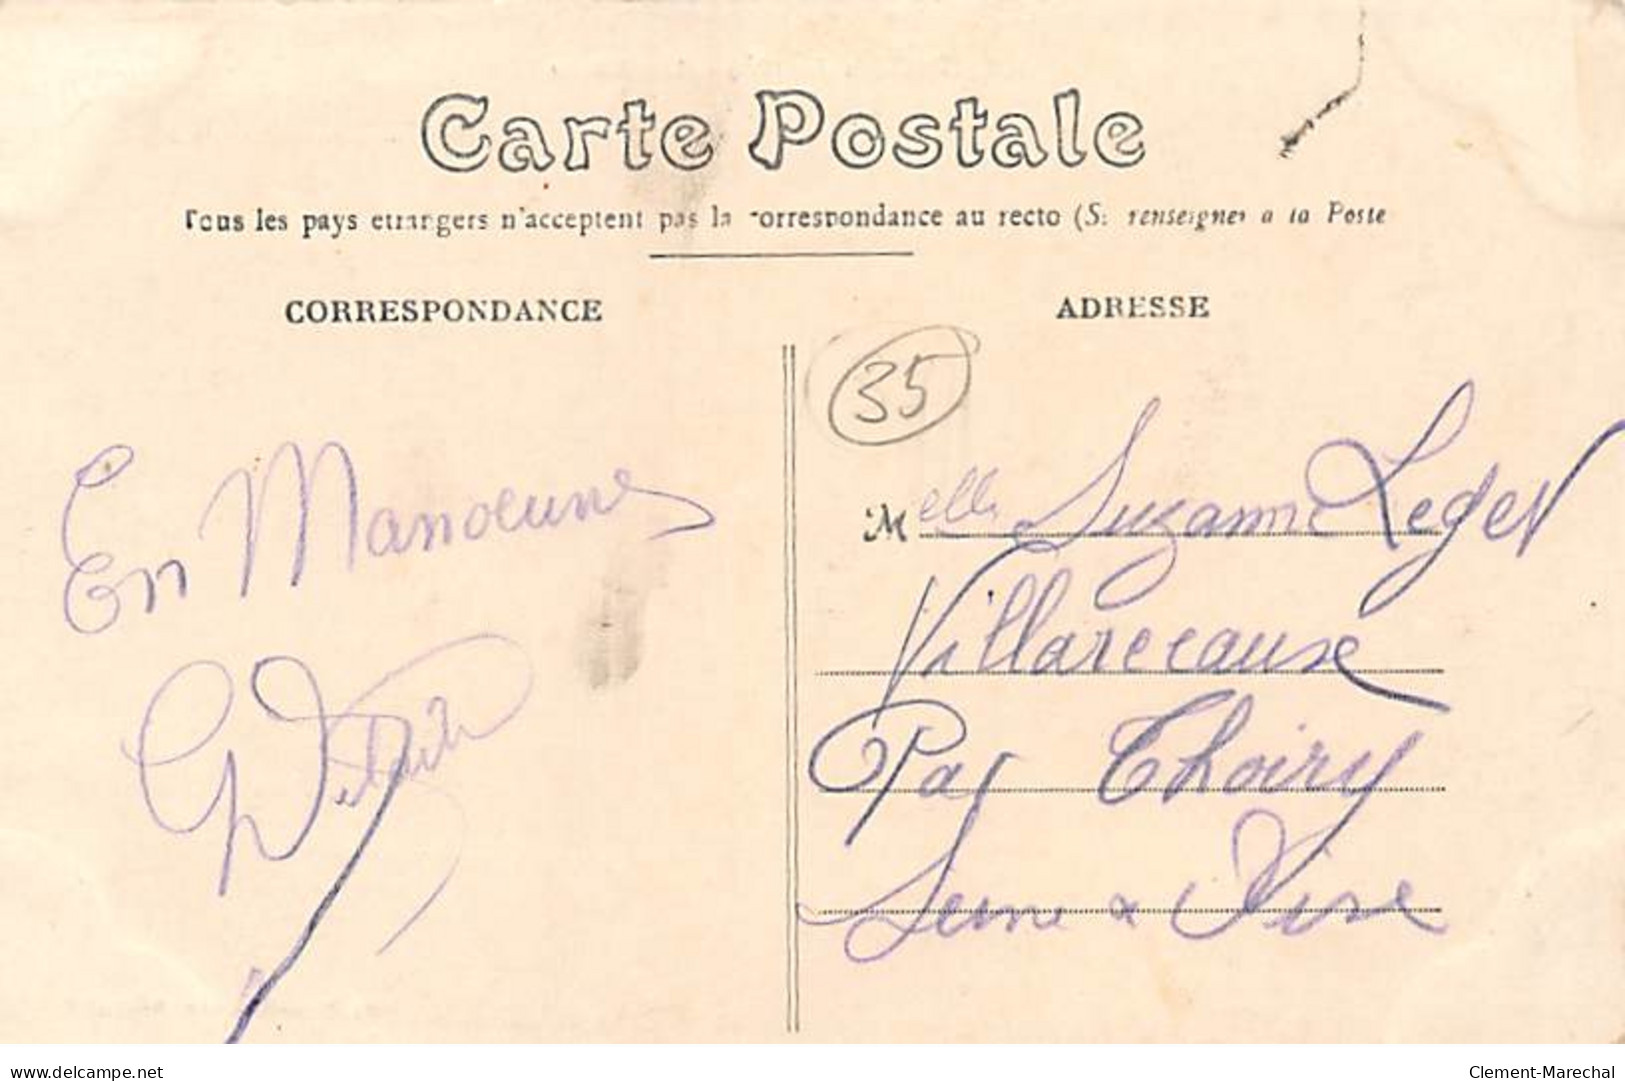 Carte Postale
Tous les pays etrangers n'acceptent pas la correspondance au recto (Se renseigner a la Poste
CORRESPONDANCE
ADRESSE
35
En Manoeuvres
Melle Suzanne Leger
Villarceaux
Par Thoiry
Seine & Oise
delcampe.net
Clement-Marechal